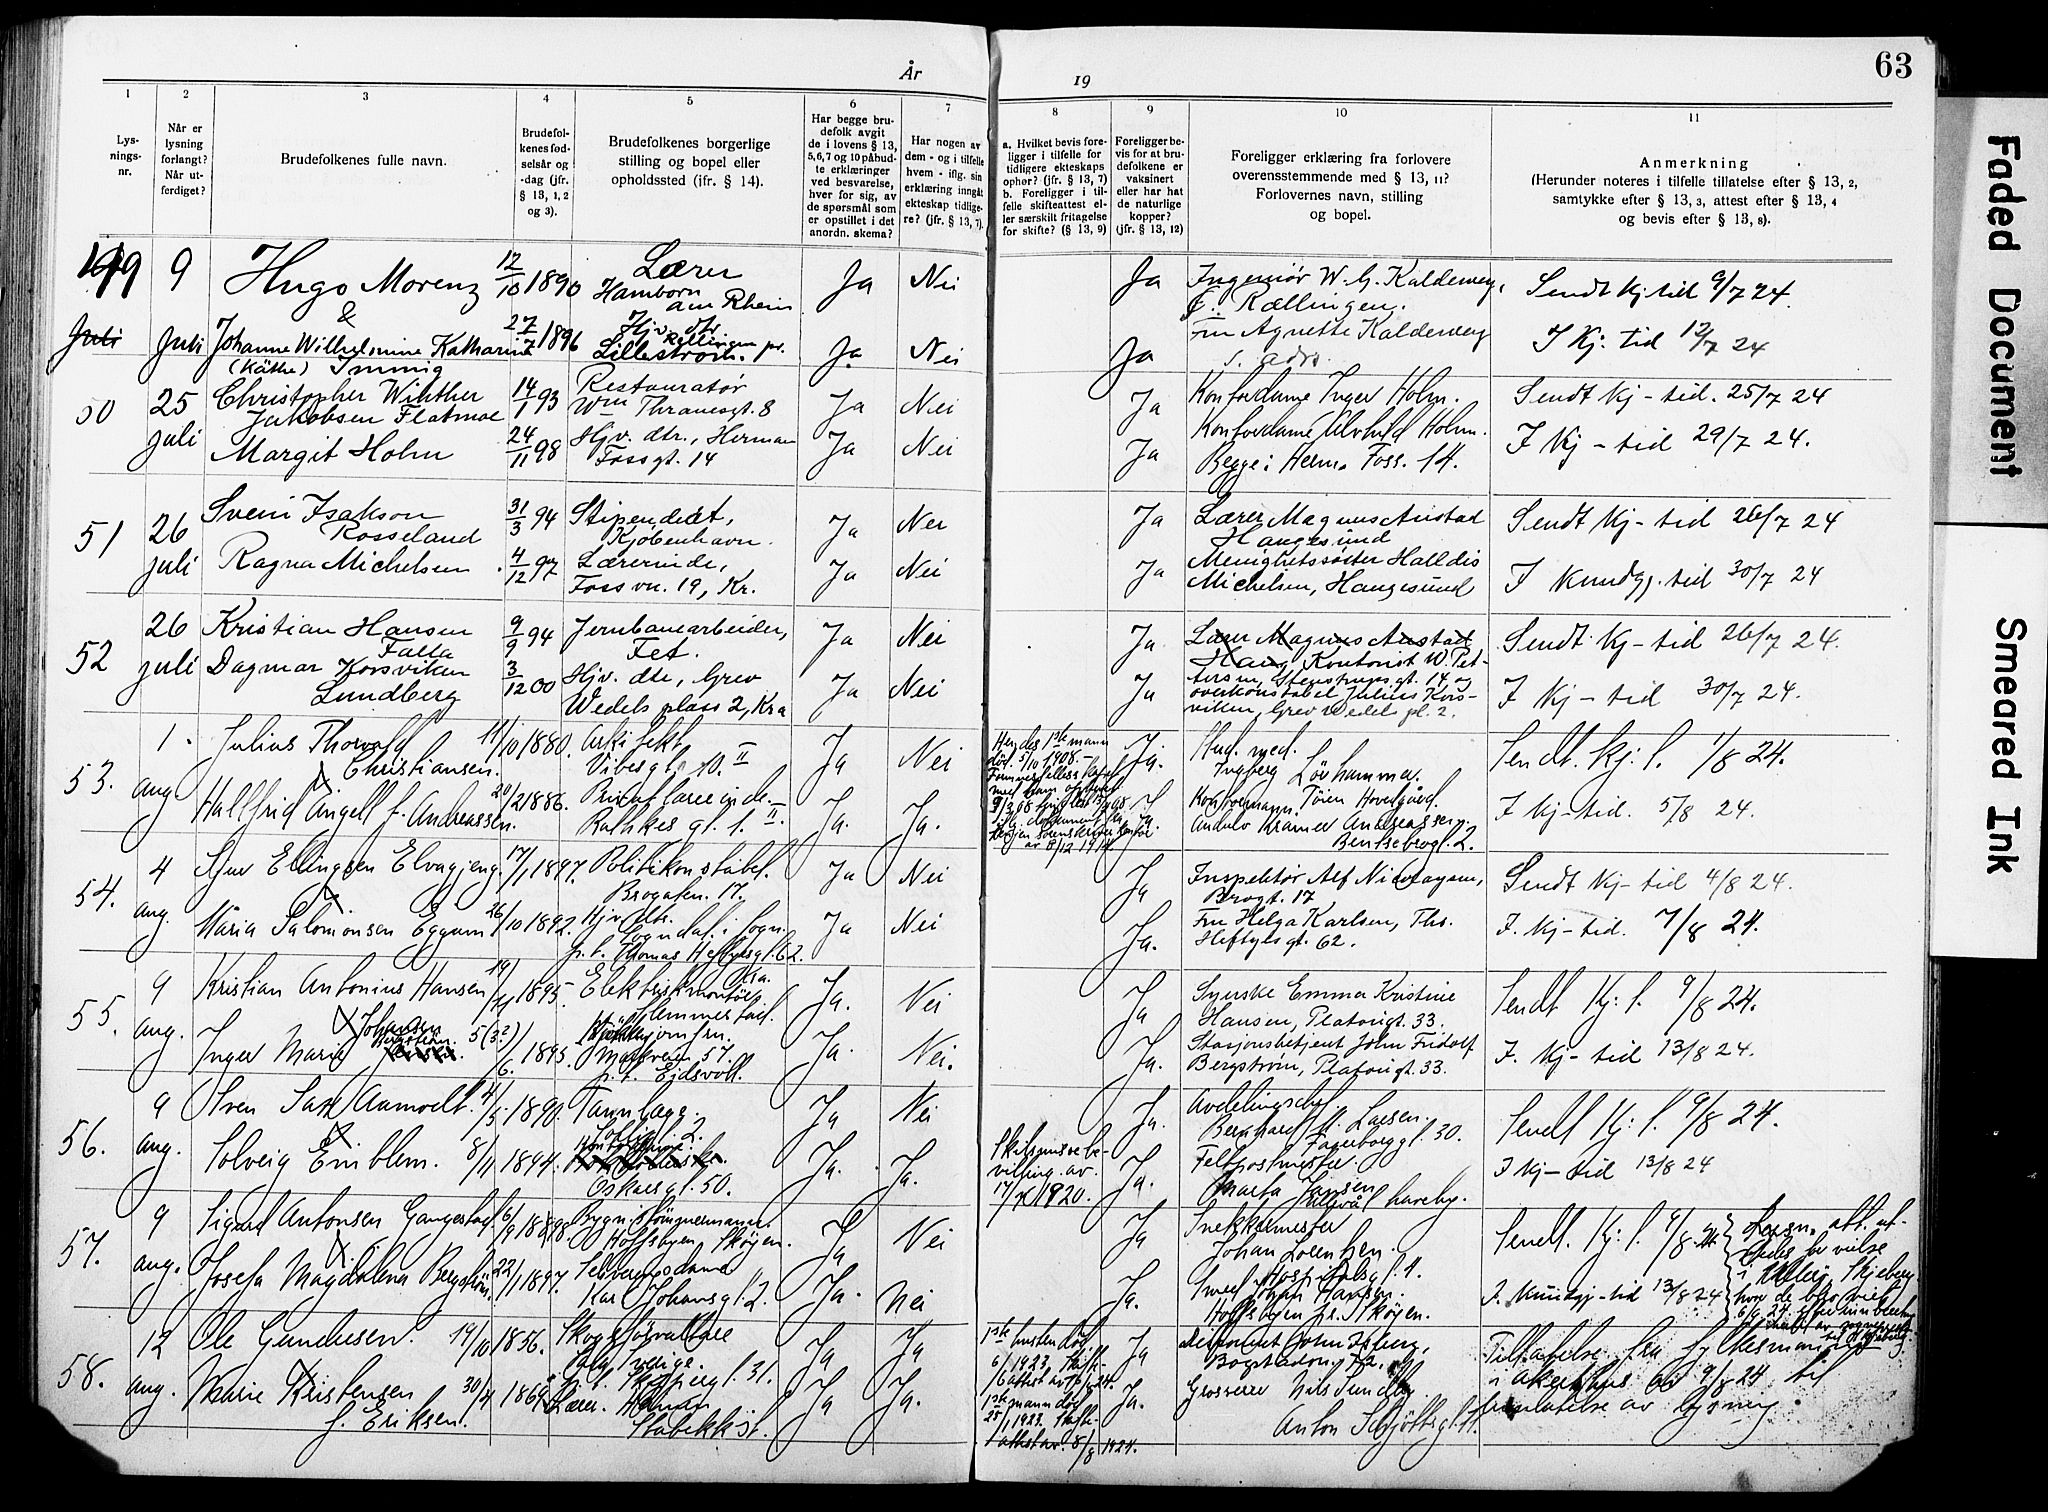 År
19
63
1
2
3
4
5
6
7
8
9
10
11
Lys-
nings-
nr.
Når er
lysning
forlangt?
Når ut-
ferdiget?
Brudefolkenes fulle navn.
Brudefol-
kenes fød-
selsår og
-dag (jfr.
§ 13, 1, 2
og 3).
Brudefolkenes borgerlige
stilling og bopel eller
opholdssted (jfr. § 14).
Har begge bru-
defolk avgit
de i lovens § 13,
5, 6, 7 og 10 påbud-
te erklæringer
ved besvarelse,
hver for sig, av
de spørsmål som
er opstillet i det
anordn. skema?
Har nogen av
dem - og i tilfelle
hvem - iflg. sin
erklæring inngåt
ekteskap tidlige-
re? (jfr. § 13, 7).
a. Hvilket bevis fore-
ligger i tilfelle for
tidligere ekteskaps
ophør? (jfr. § 13, 7)
b. Foreligger i til-
felle skifteattest el-
ler særskilt fritagelse
for skifte? (§ 13, 9)
Foreligger be-
vis for at bru-
defolkene er
vaksinert
eller har hat
de naturlige
kopper?
(jfr. § 13, 12)
Foreligger erklæring fra forlovere
overensstemmende med § 13, 11?
Forlovernes navn, stilling
og bopel.
Anmerkning
(Herunder noteres i tilfelle tillatelse efter § 13, 2,
samtykke efter § 13, 3, attest efter § 13, 4
og bevis efter § 13, 8).
49
9
Juli
Juli
Hugo Morenz
&
Johanne Wilhelmine Katharina
(Käthe) Imming
12/10 1890
27/7 1896
Lærer
Hamborn
am Rhein
Hjv. dtr
Rellingen pr.
Lillestrøm.
Ja
Ja
Nei
Nei
Ja
Ja
Ingeniør W. G. Kaldeweg,
Rællingen.
Fru Agnette Kaldeweg
s. adr.
Sendt Kj-tid 9/7 24.
I Kj-tid 12/7 24
50
25
juli
Christopher Winther
Jakobsen Flatmoe
Margit Holm
14/1 93
24/11 98
Restauratør
Wm Thranesgt. 8
Hjv. dtr., Herman
Fossgt. 14
Ja
Ja
Nei
Nei
Ja
Ja
Kontordame Inger Holm.
Kontordame Alvhild Holm.
Begge: Herm. Foss. 14.
Sendt Kj-tid. 25/7 24
I Kj-tid 29/7 24.
51
26
juli
Svein Isakson
Rosseland
Ragna Michelsen
31/3 94
4/12 97
Stipendiat,
Kjøbenhavn.
Lærerinde,
Fossvn. 19, Kr.
Ja
Ja
Nei
Nei
Ja
Ja
Lærer Magnus Austad
Haugesund
Menighetssøster Halldis
Michelsen, Haugesund
Sendt Kj-tid 26/7 24
I Kundgj. tid 30/7 24
52
26
juli
Kristian Hansen
Falla
Dagmar Korsviken
Lundberg
9/9 94
3/12 00
Jernbanearbeider,
Fet.
Hjv. dtr, Grev
Wedels plass 2, Kra
Ja
Ja
Nei
Nei
Ja
Ja
Lærer Magnus Austad
Haug Kontorist W. Pet-
tersen, Stenstrupsgt. 14, og
overkonstabel Julius Kors-
viken, Grev Wedels pl. 2.
Sendt Kj-tid 26/7 24.
I Kj-tid 30/7 24.
53.
1.
aug
Julius Thorvald
Christiansen.
Hallfrid Angell f. Andreassen.
11/10 1880.
20/2 1886.
Arkitekt
Vibesgt. 10. II
Privatlærerinde.
Rathkes gt. 1. II
Ja
Ja.
Nei
Ja.
Hendes 1ste mann
død 5/10 1908.
Ja.
Ja.
Stud. med.
Ingberg Lövhammer.
Kontormann, Töien Hovedgård.
Andulv Kramer Andreassen,
Bentsebrogt. 2.
Sendt. Kj: t. 1/8 24.
I Kj-tid. 5/8 24.
54.
4
aug.
Sjur Ellingsen Elvagjeng.
Maria Salomonsen Eggum
17/1 1897.
26/10 1892.
Politikonstabel.
Brogaten. 17.
Hjv. dtr.
Sogndal i Sogn.
p. t. Thomas Heftyesgt. 62.
Kra.
Ja
Ja
Nei
Nei
Ja
Ja.
Inspektør Alf Nicolaysen,
Brogt. 17
Fru Helga Karlsen, Ths.
Heftyesgt. 62.
Sendt Kj-tid 4/8 24.
I. Kj-tid. 7/8 24.
55.
9
aug.
Kristian Antonius Hansen
Inger Marie Johansen
Bergström.
19/11 1895.
5(3?)/6. 1895.
Elektriskmontør
Slemmestad.
Markveien 57.
p. t. Ejdsvoll.
Ja.
Ja.
Nei
Nei.
Ja
Ja.
Syerske Emma Kristine
Hansen, Platousgt. 33.
Stasjonsbetjent John Fridolf
Bergstrøm, Platousgt. 33.
Sendt Kj: t. 9/8 24.
I. Kj-tid 13/8 24.
56.
9
aug.
Sven Saxe Aamodt.
Solveig Emblem.
4/5. 1890.
8/11 1894.
Tannlæge.
2.
Oskarsgt. 50.
Ja
Ja.
Nei
Ja.
Skilsmissebe-
villing av
1920.
Ja.
Ja.
Avdelingschef
Bernhard M. Larsen.
Fagerborggt. 30.
Feltpostmester.
Marta Jansen
Ullevål haveby.
Sendt Kj: t. 9/8 24.
I Kj-tid 13/8 24
57.
9
aug.
Sigurd Antonsen Gangestad.
Josefa Magdalena Bergström.
6/9 1898.
22/1 1897.
Bygningstömmermann.
Hoffsbyen, Skøyen.
Serveringsdame
Karl Johansgt. 2.
Ja
Ja.
Nei
Nei
Ja
Ja.
Snekkermester
Johan Lorentzen.
Hospitalsgt. 1.
Smed Johan Hansen.
Hoffsbyen pr. Skøyen.
Sendt. Kj: t. 9/8. 24
I. Kundgj-tid 13/8 24
Lysn. att. ut-
stedes for vielse
i Skjeberg
hvor de blev viet
6/9 24.
58.
12
aug.
Ole Gundersen.
Marie Kristensen
f. Eriksen.
19/10 1856.
30/4 186
Skogsforvaltere
p. t. gt. 31.
Lærer.
Stabekk st.
Ja
Ja
Ja
Ja.
1ste hustru død
6/1 1923, Skifte-
1ste mann død
25/1 1923. Skifte-
attest av 8/8 1924.
Ja
Ja.
Bogstadvn. 72.
Grosserer Nils Sundby
Anton Schjøttsgt. 11.
Tillatelse fra fylkesmannen
i Akershus av 9/8 24 til
undlatelse av lysning.
Faded Document
Smeared Ink